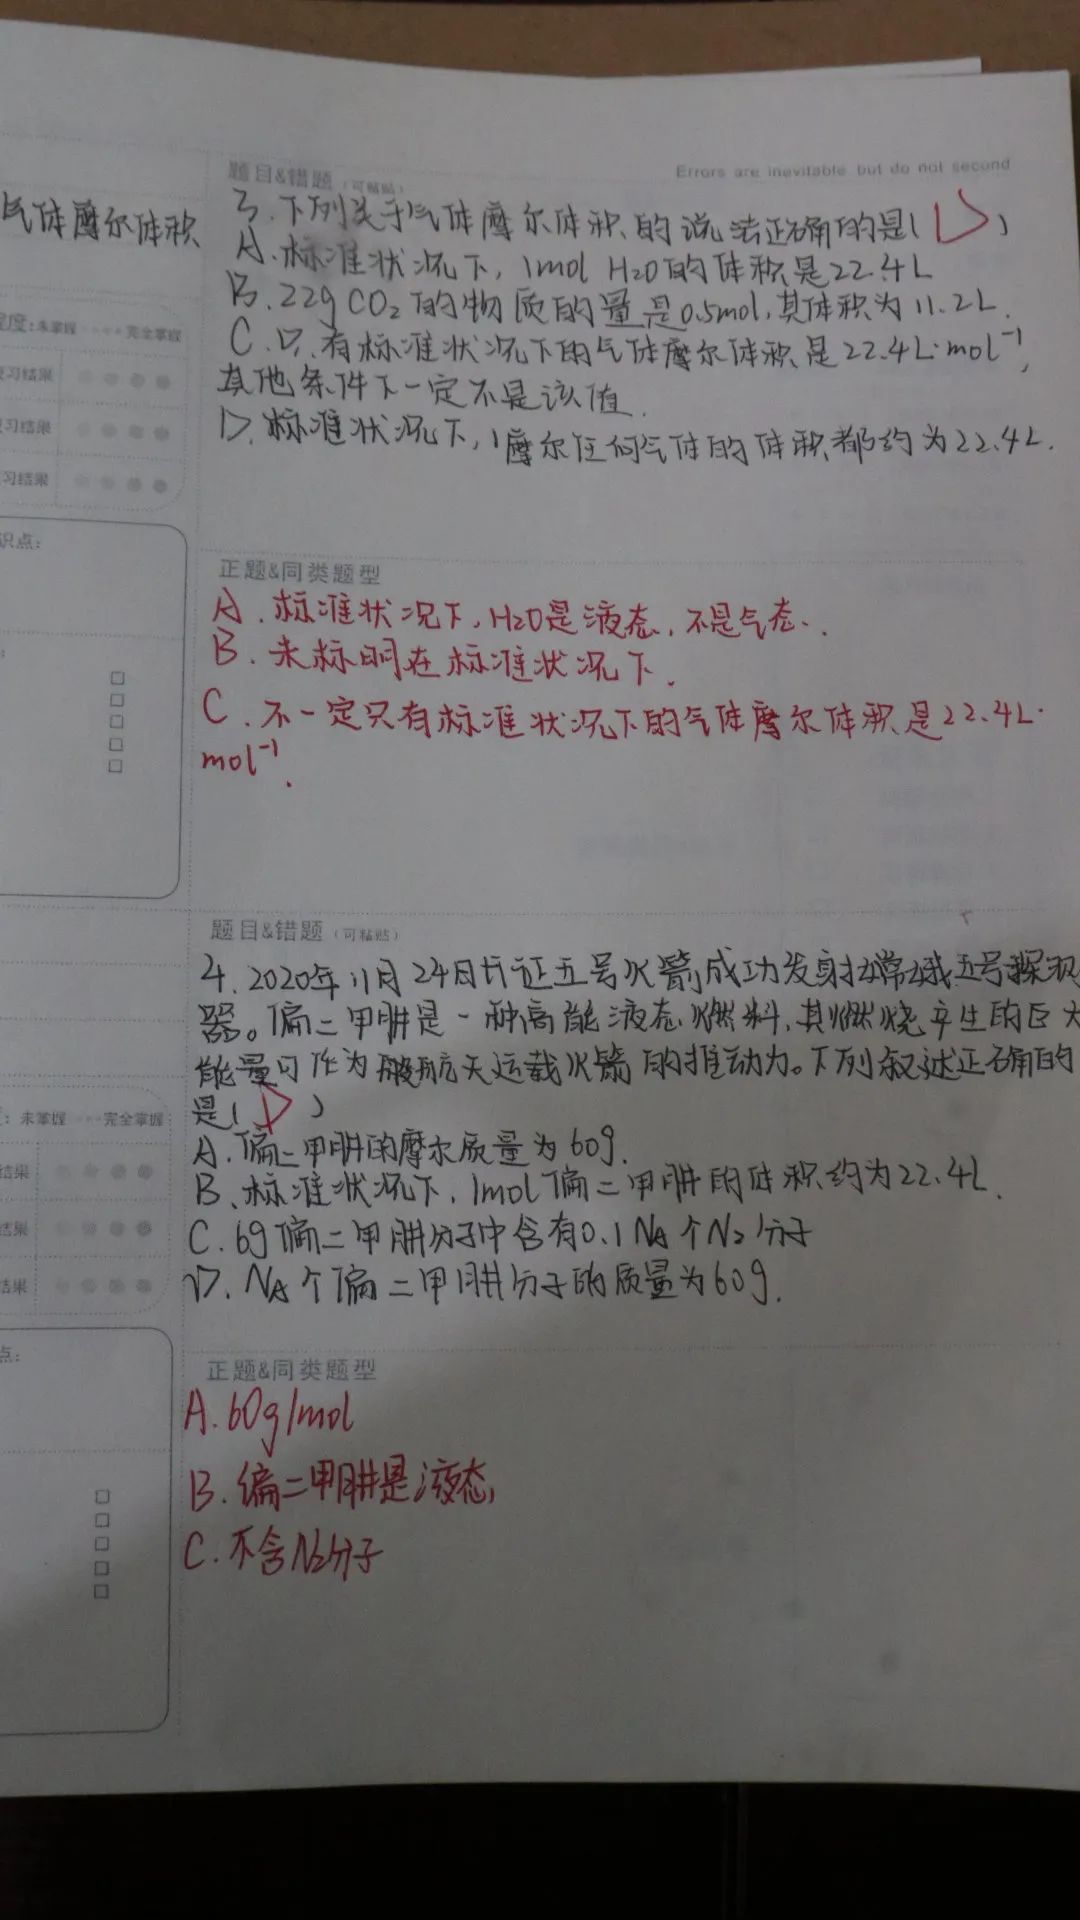 题目&错题（可粘贴）
Errors are inevitable but do not second
气体摩尔体积
3.下列关于气体摩尔体积的说法正确的是( D )
A.标准状况下,1mol H2O的体积是22.4L
B.22g CO2的物质的量是0.5mol,其体积为11.2L.
C.只有标准状况下的气体摩尔体积是22.4L·mol⁻¹,
其他条件下一定不是该值.
D.标准状况下,1摩尔任何气体的体积都约为22.4L.
程度:未掌握 ···· 完全掌握
复习结果
复习结果
习结果
识点:
正题&同类题型
A.标准状况下,H2O是液态,不是气态.
B.未标明在标准状况下.
C.不一定只有标准状况下的气体摩尔体积是22.4L·
mol⁻¹.
题目&错题（可粘贴）
4.2020年11月24日长征五号火箭成功发射嫦娥五号探测
器。偏二甲肼是一种高能液态燃料,其燃烧产生的巨大
能量可作为航天运载火箭的推动力。下列叙述正确的
是( D )
A.偏二甲肼的摩尔质量为60g.
B.标准状况下,1mol偏二甲肼的体积约为22.4L.
C.6g偏二甲肼分子中含有0.1NA个N2分子
D.NA个偏二甲肼分子的质量为60g.
:未掌握 ···· 完全掌握
结果
结果
结果
点:
正题&同类题型
A.60g/mol
B.偏二甲肼是液态,
C.不含N2分子